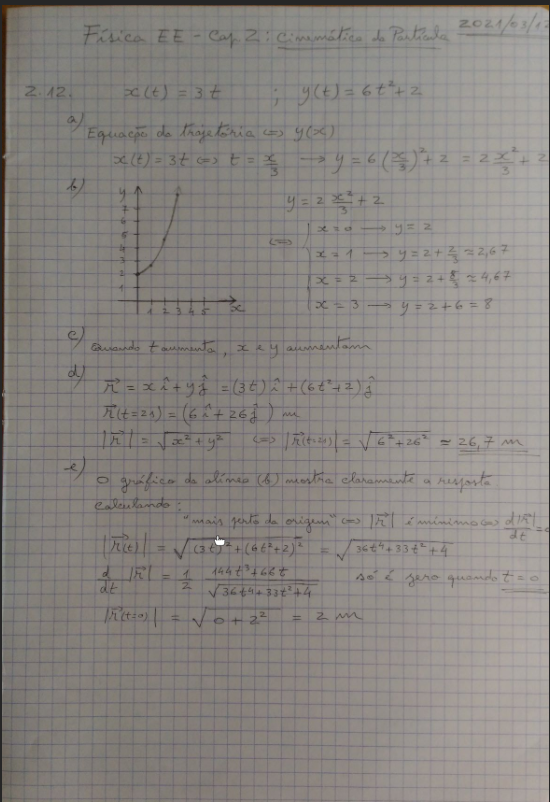 2021/03/17
Física EE - Cap 2: Cinemática da Partícula
2.12. x(t) = 3t ; y(t) = 6t² + 2
a) Equação da trajetória ⇔ y(x)
x(t) = 3t ⇔ t = x/3 → y = 6(x/3)² + 2 = 2 x²/3 + 2
b) y = 2 x²/3 + 2
y
7
6
5
4
3
2
1
1 2 3 4 5 x
⇔ x = 0 → y = 2
x = 1 → y = 2 + 2/3 ≈ 2,67
x = 2 → y = 2 + 8/3 ≈ 4,67
x = 3 → y = 2 + 6 = 8
c) Quando t aumenta, x e y aumentam
d) r⃗ = x î + y ĵ = (3t) î + (6t² + 2) ĵ
r⃗(t=2s) = (6 î + 26 ĵ) m
|r⃗| = √(x² + y²) ⇔ |r⃗(t=2s)| = √(6² + 26²) ≈ 26,7 m
e) O gráfico da alínea (b) mostra claramente a resposta
calculando:
"mais perto da origem" ⇔ |r⃗| é mínimo ⇔ d|r⃗|/dt = 0
|r⃗(t)| = √((3t)² + (6t² + 2)²) = √(36t⁴ + 33t² + 4)
d/dt |r⃗| = 1/2 (144t³ + 66t)/√(36t⁴ + 33t² + 4) só é zero quando t = 0
|r⃗(t=0)| = √(0 + 2²) = 2 m